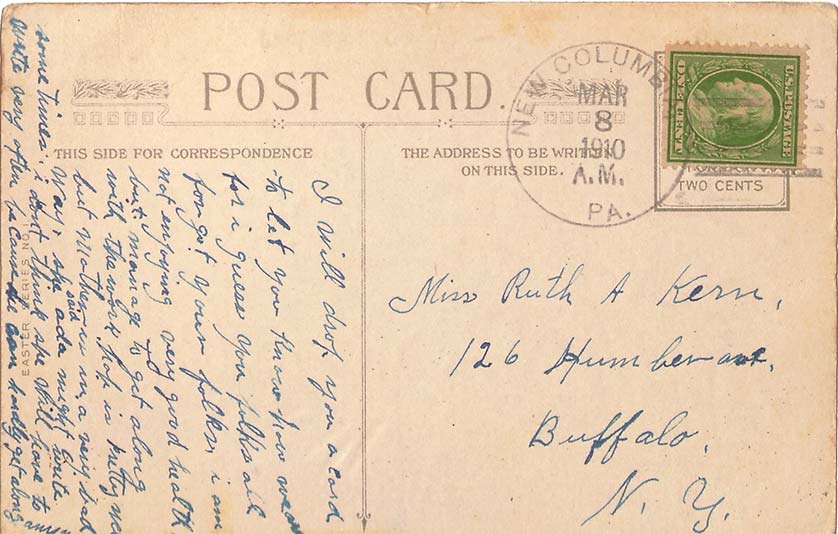 POST CARD.
THIS SIDE FOR CORRESPONDENCE
THE ADDRESS TO BE WRITTEN
ON THIS SIDE.
NEW COLUMBIA
MAR
8
1910
A.M.
PA.
U.S. POSTAGE
ONE CENT
TWO CENTS
EASTER SERIES NO
Miss Ruth A Kern,
126 Humber ave,
Buffalo,
N. Y.
I will drop you a card
to let you know how we are
for i guess you folks all
forgot your folks, i am
not enjoying very good health
but manage to get along
with the work, Pop is
but Mother is in a very bad
way, she said ada might write
some times, i don't think she will have to
write very often because she can hardly get along